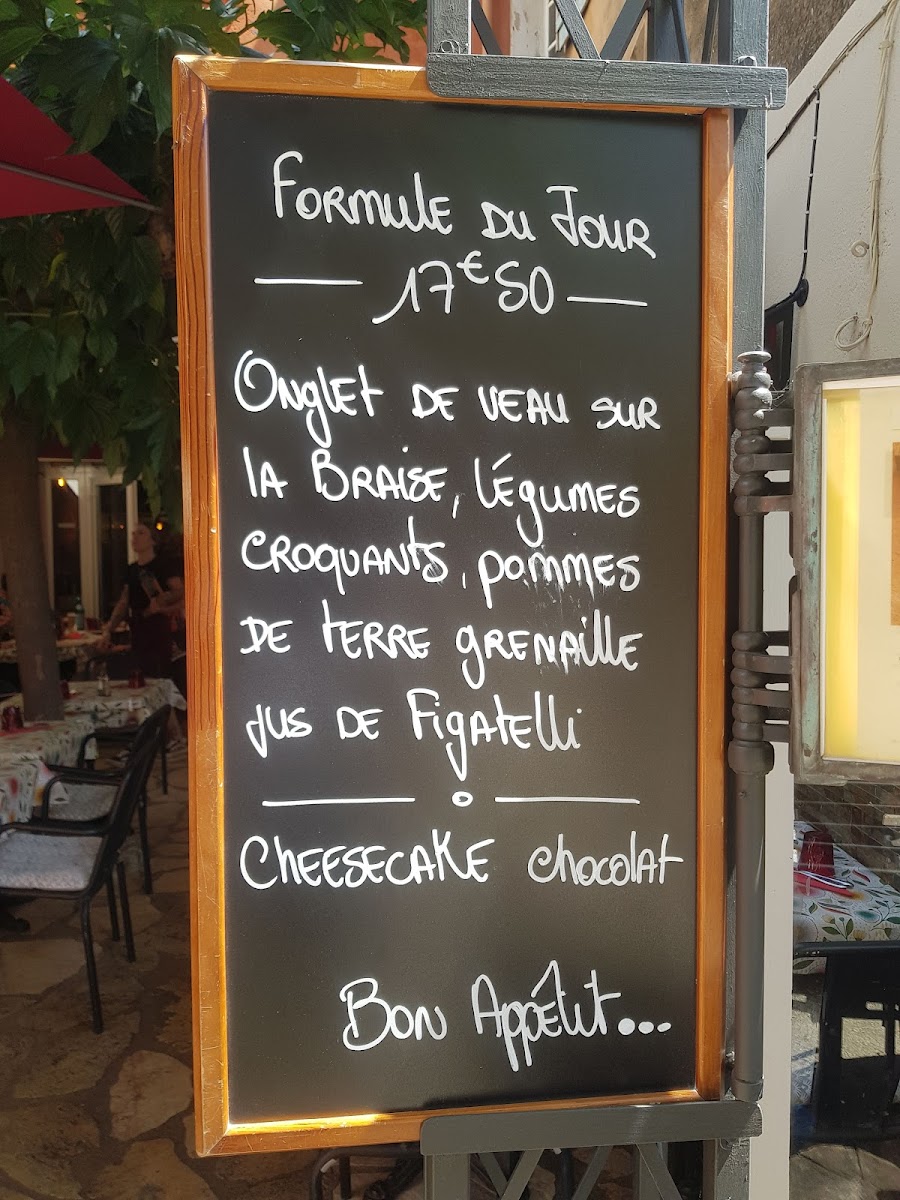 Formule du Jour
17€50
Onglet de veau sur
la Braise, légumes
croquants, pommes
de terre grenaille
jus de Figatelli
Cheesecake chocolat
Bon Appétit...